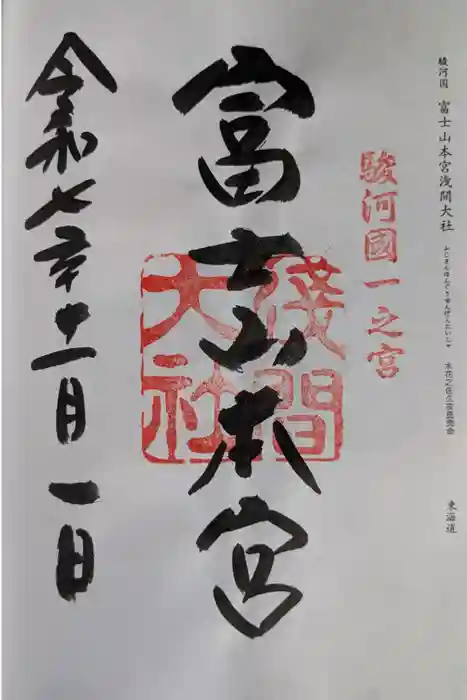 駿河国 富士山本宮浅間大社 ふじさんほんぐうせんげんたいしゃ 木花之佐久夜毘売命 東海道
駿河國一之宮
富士山本宮
淺間
大社
令和七年十一月一日